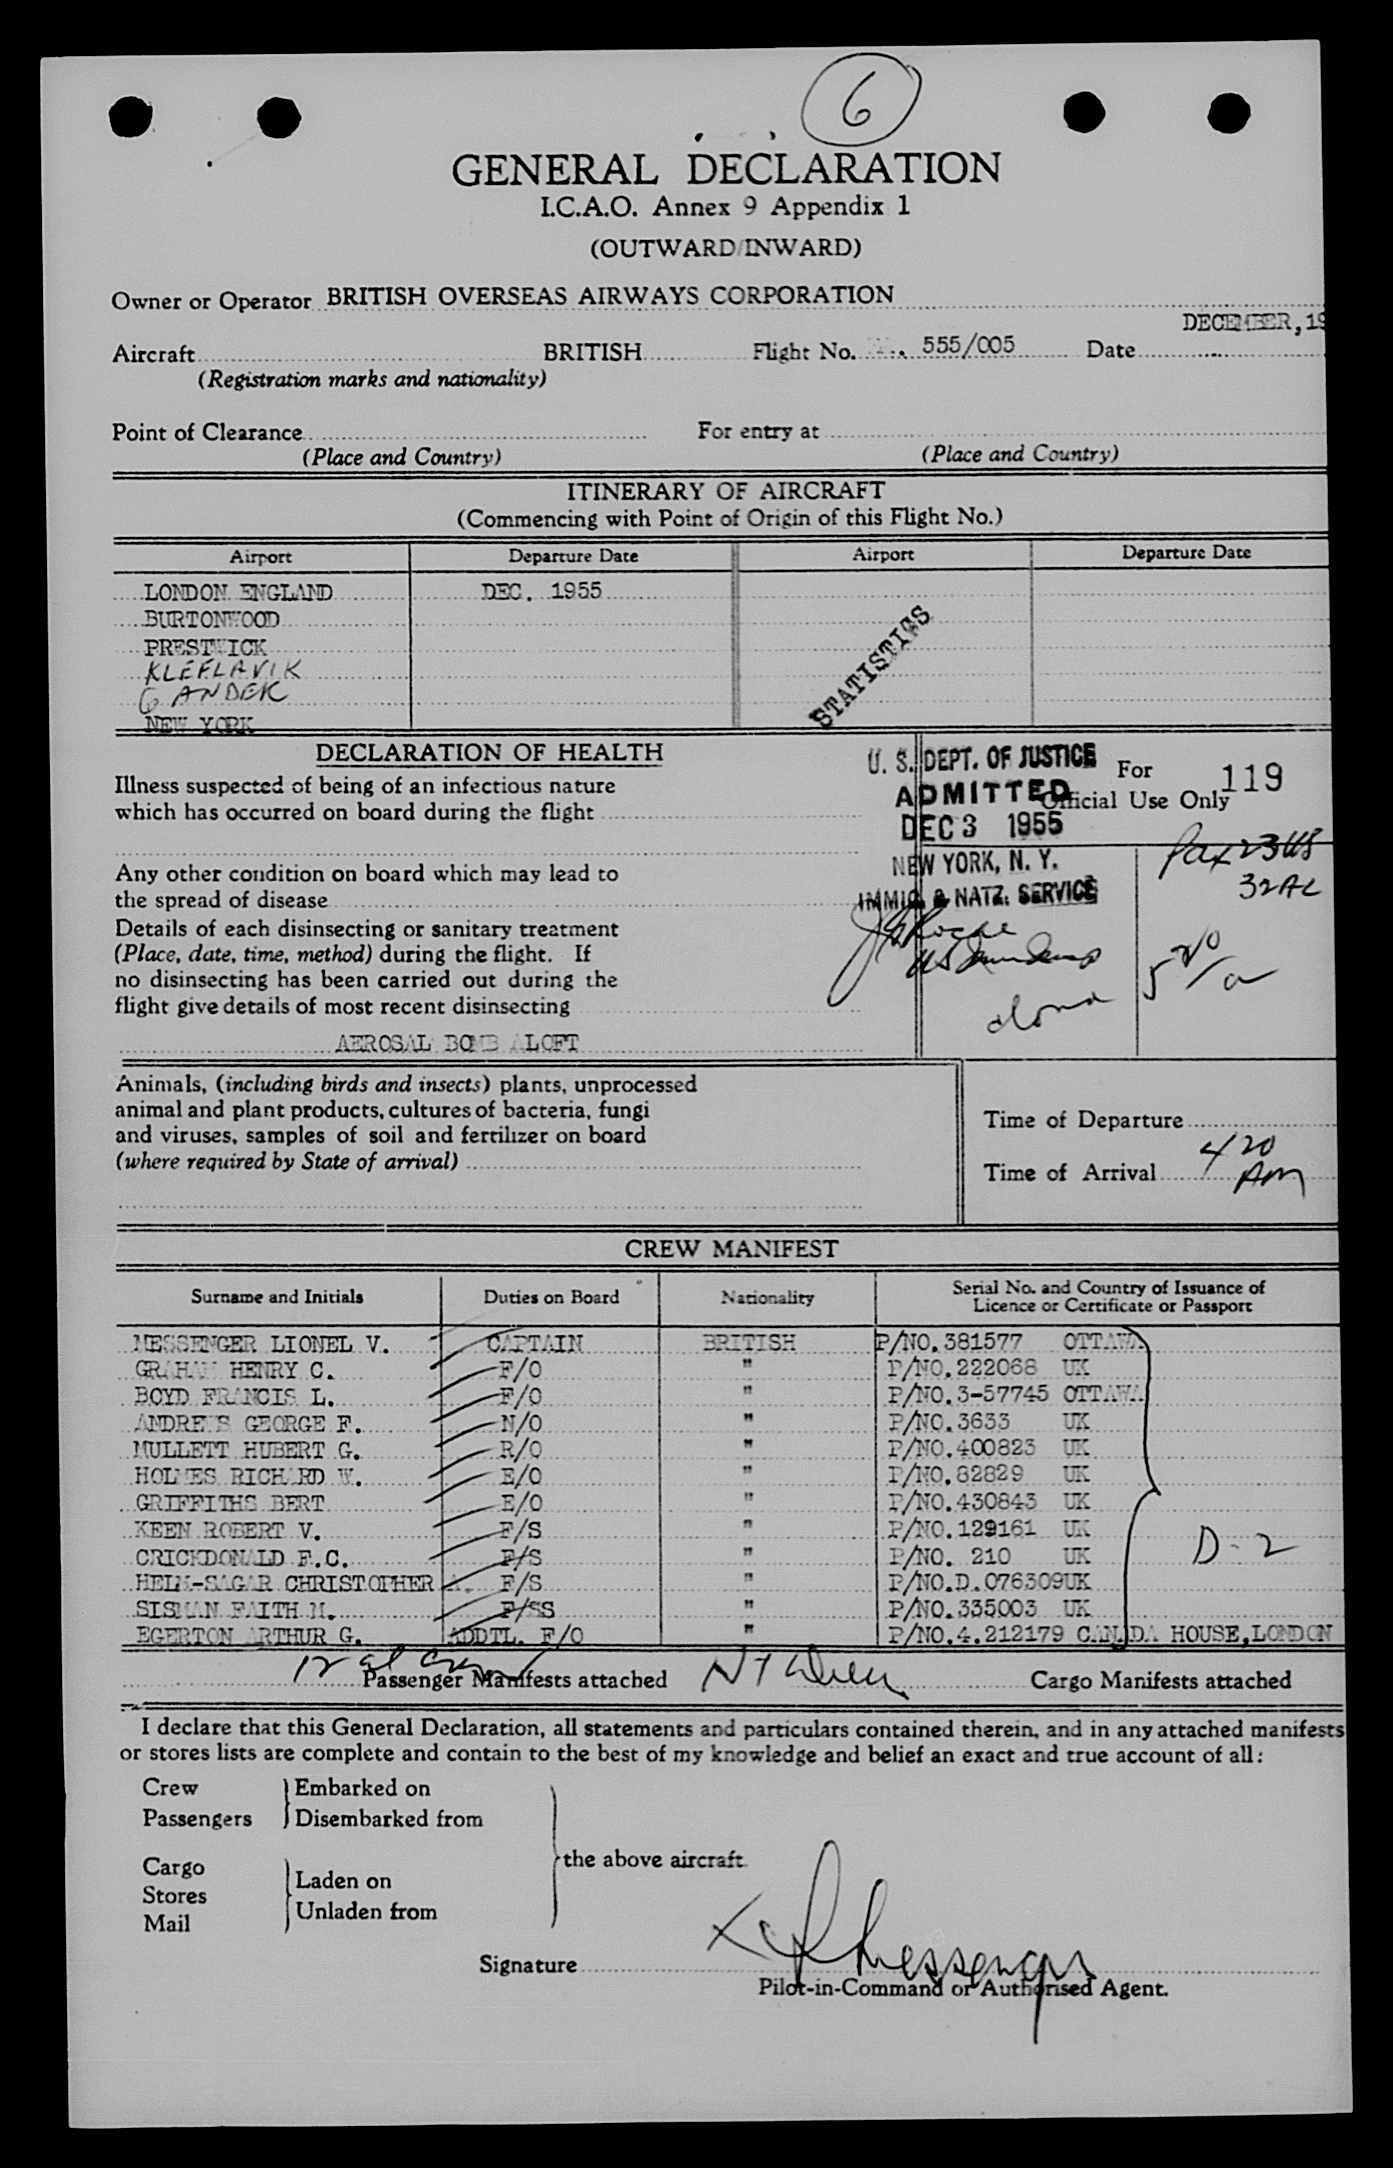 6
GENERAL DECLARATION
I.C.A.O. Annex 9 Appendix 1
(OUTWARD/INWARD)
Owner or Operator BRITISH OVERSEAS AIRWAYS CORPORATION
DECEMBER, 19
Aircraft BRITISH Flight No. 555/005 Date
(Registration marks and nationality)
Point of Clearance For entry at
(Place and Country) (Place and Country)
ITINERARY OF AIRCRAFT
(Commencing with Point of Origin of this Flight No.)
Airport Departure Date Airport Departure Date
LONDON ENGLAND DEC. 1955
BURTONWOOD
PRESTWICK
KLEFLAVIK
GANDER
NEW YORK
STATISTICS
DECLARATION OF HEALTH
Illness suspected of being of an infectious nature
which has occurred on board during the flight
Any other condition on board which may lead to
the spread of disease
Details of each disinsecting or sanitary treatment
(Place, date, time, method) during the flight. If
no disinsecting has been carried out during the
flight give details of most recent disinsecting
AEROSAL BOMB ALOFT
U. S. DEPT. OF JUSTICE
ADMITTED
DEC 3 1955
NEW YORK, N. Y.
IMMIG. & NATZ. SERVICE
For 119
Official Use Only
Pax 23 US
32 AL
Animals, (including birds and insects) plants, unprocessed
animal and plant products, cultures of bacteria, fungi
and viruses, samples of soil and fertilizer on board
(where required by State of arrival)
Time of Departure
Time of Arrival 420 AM
CREW MANIFEST
Surname and Initials Duties on Board Nationality Serial No. and Country of Issuance of
Licence or Certificate or Passport
MESSENGER LIONEL V. CAPTAIN BRITISH P/NO.381577 OTTAWA
GRAHAM HENRY C. F/O " P/NO.222068 UK
BOYD FRANCIS L. F/O " P/NO.3-57745 OTTAWA
ANDREWS GEORGE F. N/O " P/NO.3633 UK
MULLETT HUBERT G. R/O " P/NO.400823 UK
HOLMES RICHARD W. E/O " P/NO.82829 UK
GRIFFITHS BERT E/O " P/NO.430843 UK
KEEN ROBERT V. F/S " P/NO.129161 UK
CRICKDONALD F.C. F/S " P/NO. 210 UK
HELM-SAGAR CHRISTOPHER A. F/S " P/NO.D.076309UK
SISMAN FAITH M. F/SS " P/NO.335003 UK
EGERTON ARTHUR G. ADDTL. F/O " P/NO.4.212179 CANADA HOUSE,LONDON
D-2
Passenger Manifests attached Cargo Manifests attached
I declare that this General Declaration, all statements and particulars contained therein, and in any attached manifests
or stores lists are complete and contain to the best of my knowledge and belief an exact and true account of all:
Crew Embarked on
Passengers Disembarked from
the above aircraft.
Cargo Laden on
Stores
Mail Unladen from
Signature
Pilot-in-Command or Authorised Agent.